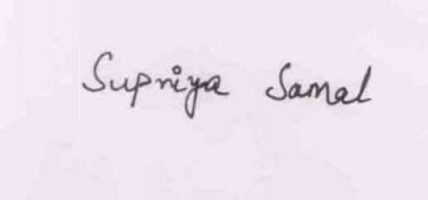 Supriya Samal